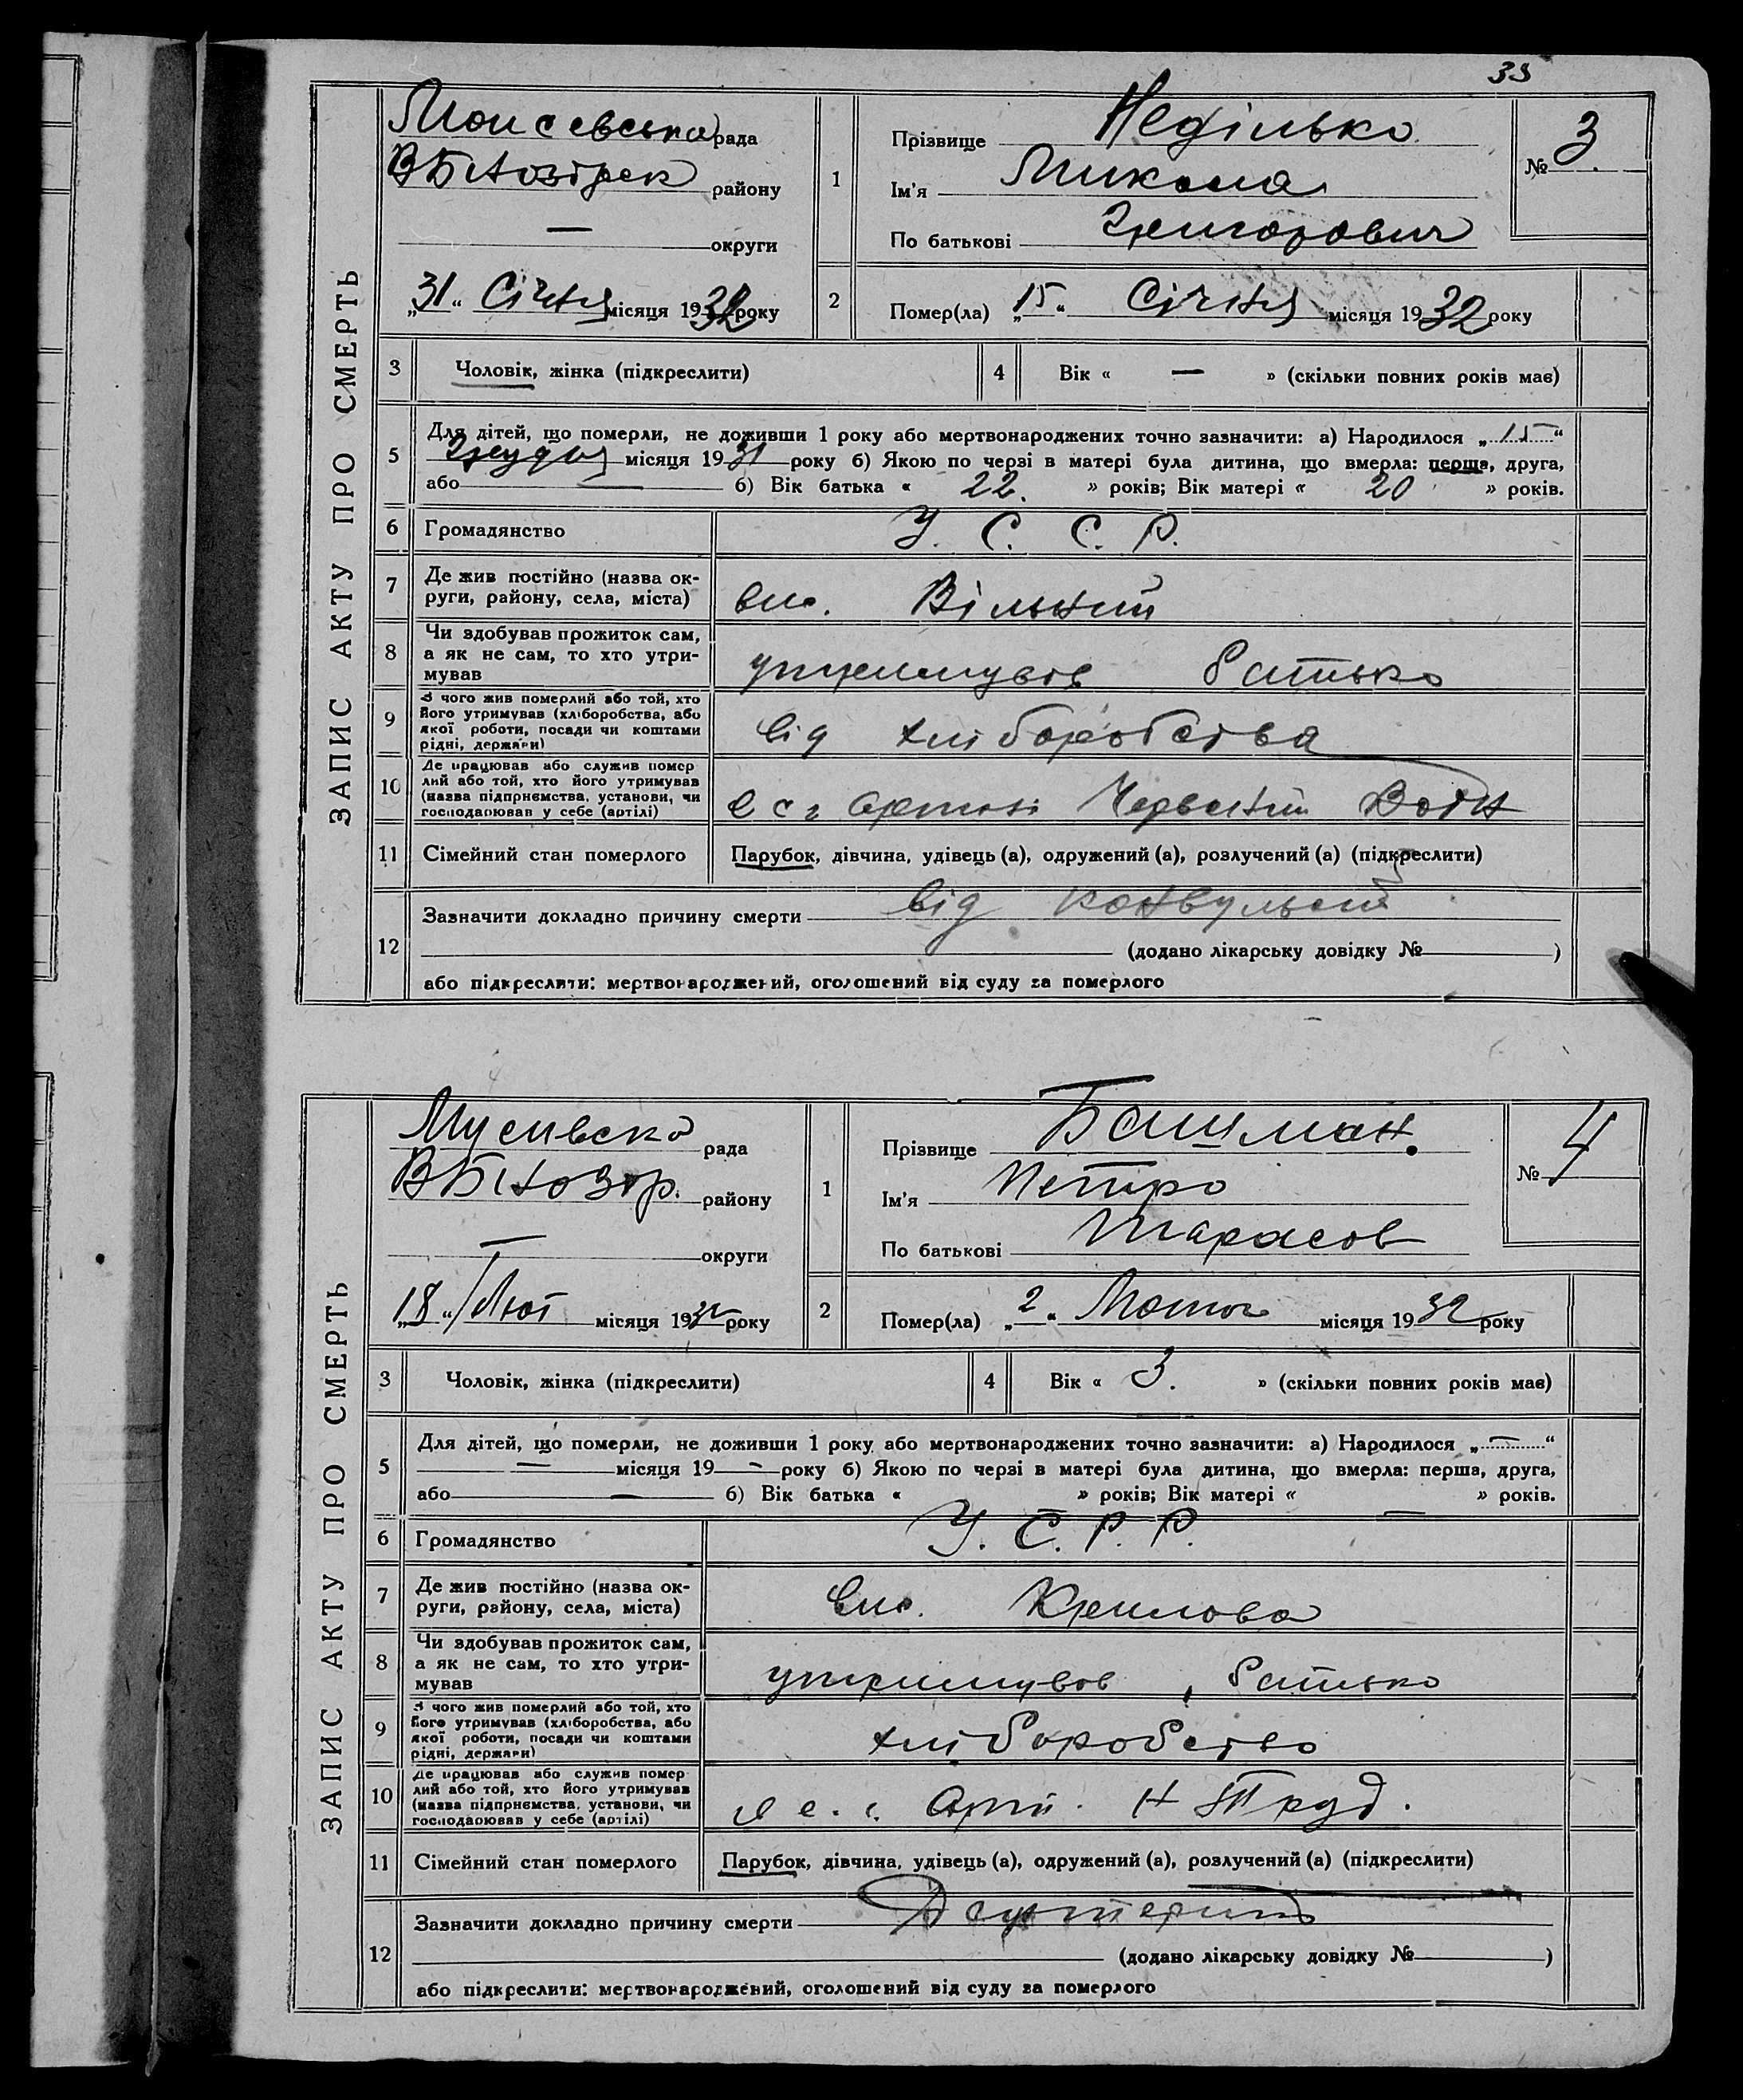 39
ЗАПИС АКТУ ПРО СМЕРТЬ
рада
району
— округи
„31“ Січня місяця 1932 року
1
Прізвище Неділько
Ім'я Микола
По батькові Григорович
№ 3.
2
Помер(ла) „15“ Січня місяця 1932 року
3 Чоловік, жінка (підкреслити)
4 Вік « — » (скільки повних років має)
5 Для дітей, що померли, не доживши 1 року або мертвонароджених точно зазначити: а) Народилося „15“
Грудня місяця 1931 року б) Якою по черзі в матері була дитина, що вмерла: перша, друга,
або — б) Вік батька « 22. » років; Вік матері « 20 » років.
6 Громадянство У. С. С. Р.
7 Де жив постійно (назва ок-
руги, району, села, міста) Вільний
8 Чи здобував прожиток сам,
а як не сам, то хто утри-
мував утримував батько
9 З чого жив померлий або той, хто
його утримував (хліборобства, або
якої роботи, посади чи коштами
рідні, держави) від хліборобства
10 Де працював або служив помер
лий або той, хто його утримував
(назва підприємства, установи, чи
господарював у себе (артілі) в с г артілі Червоний
11 Сімейний стан померлого Парубок, дівчина, удівець (а), одружений (а), розлучений (а) (підкреслити)
12 Зазначити докладно причину смерти від конвульсій
(додано лікарську довідку № )
або підкреслити: мертвонароджений, оголошений від суду за померлого
ЗАПИС АКТУ ПРО СМЕРТЬ
рада
району
— округи
„18“ Лют місяця 1932 року
1
Прізвище Башман.
Ім'я Петро
По батькові Тарасов
№ 4
2
Помер(ла) „2“ місяця 1932 року
3 Чоловік, жінка (підкреслити)
4 Вік « 3. » (скільки повних років має)
5 Для дітей, що померли, не доживши 1 року або мертвонароджених точно зазначити: а) Народилося „—“
— місяця 19 — року б) Якою по черзі в матері була дитина, що вмерла: перша, друга,
або — б) Вік батька « » років; Вік матері « — » років.
6 Громадянство У. С. Р. Р.
7 Де жив постійно (назва ок-
руги, району, села, міста) Крилова
8 Чи здобував прожиток сам,
а як не сам, то хто утри-
мував утримував батько
9 З чого жив померлий або той, хто
його утримував (хліборобства, або
якої роботи, посади чи коштами
рідні, держави) хліборобство
10 Де працював або служив помер
лий або той, хто його утримував
(назва підприємства, установи, чи
господарював у себе (артілі)
11 Сімейний стан померлого Парубок, дівчина, удівець (а), одружений (а), розлучений (а) (підкреслити)
12 Зазначити докладно причину смерти
(додано лікарську довідку № )
або підкреслити: мертвонароджений, оголошений від суду за померлого